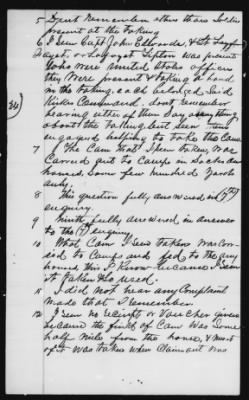 5 Dont Remember others than Soldiers
present at the taking
6 I Seen Capt John Edwards, & Lt
or Tipton was present
who were present, who's officers
they were present & taking a hand
in the taking, each belonged said
Command. dont remember
hearing either of them Say anything
about the taking but seen them
engaged helping to take the Corn
7 The Corn that I seen taken, was
carried out to Camp in Sacks and
hands, Some few hundred Yards
only.
8 This question fully answered in 7th
enquiry.
9 Ninth fully answered in answer
to the 7 enquiry
10 What Corn I Seen taken was
to Camp and fed to the
horses, this I know because I seen
it taken & used.
11 I did not hear any Complaint
made that I remember.
12 I seen no receipt or Voucher given
because the field of Corn was Some
half mile from the house, & most
of it was taken when Claimant was
(34)